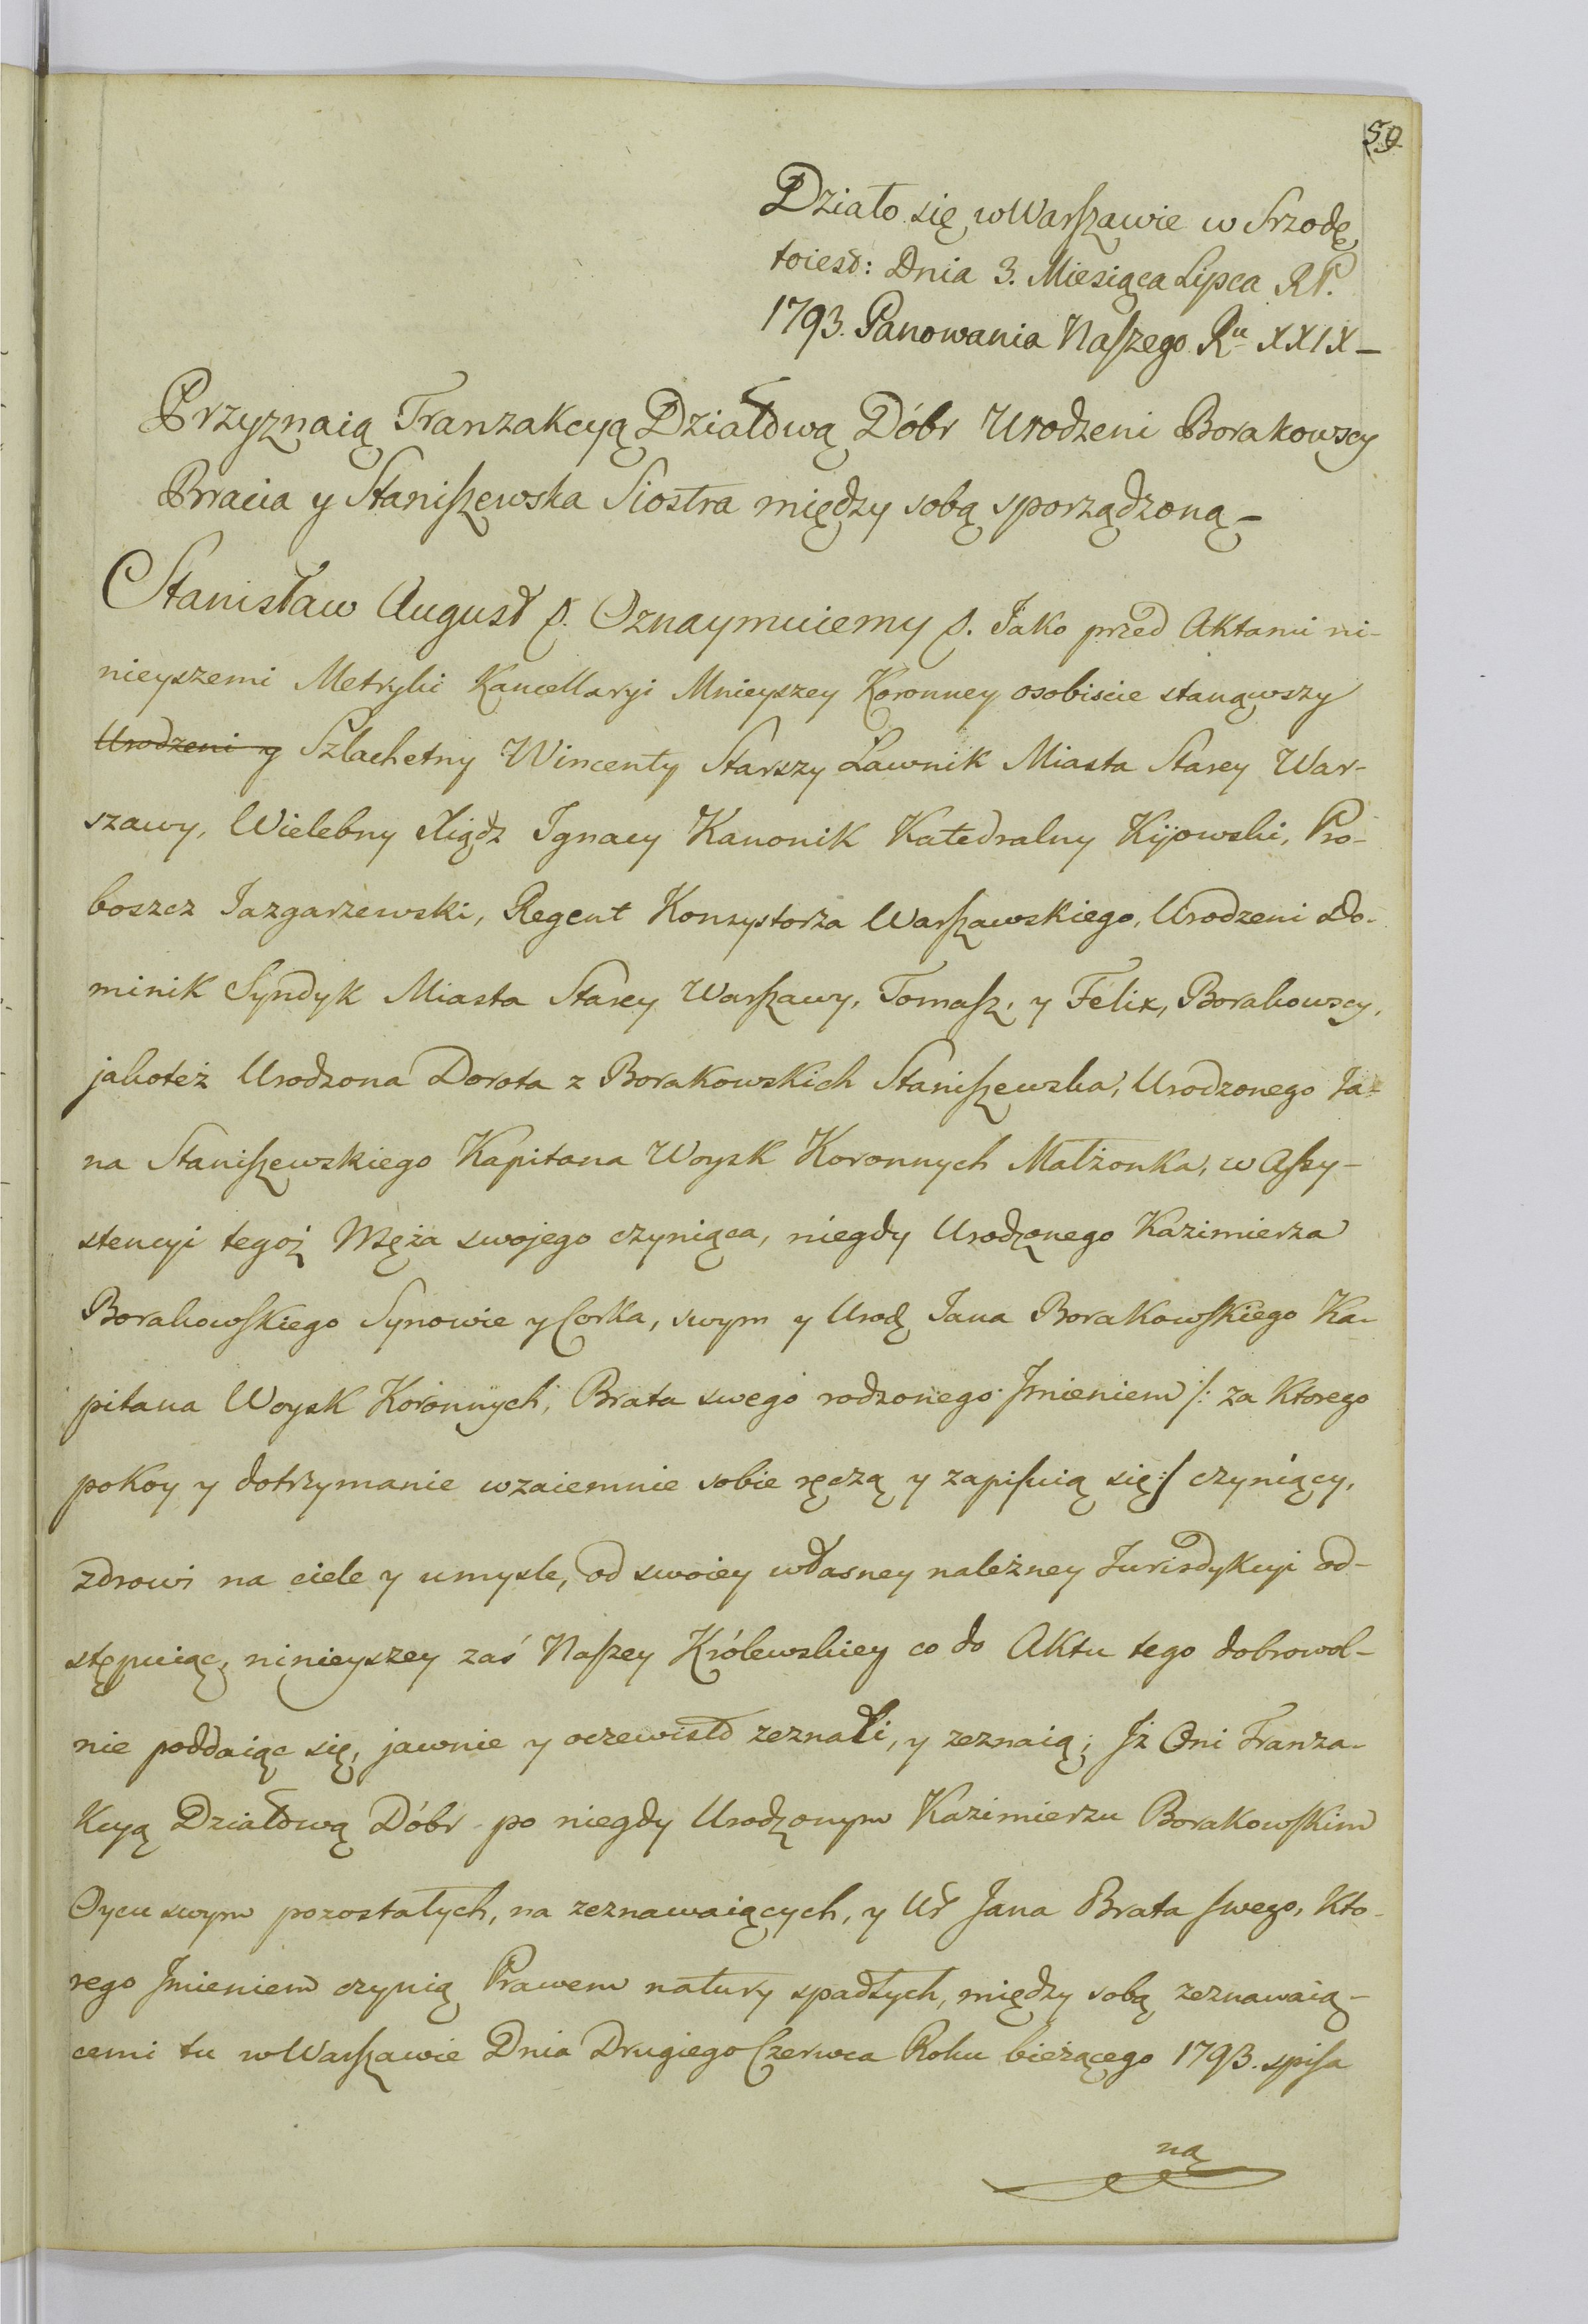 59
Działo się w Warszawie w Srzodę
toiest: Dnia 3. Miesiąca Lipca RP.
1793. Panowania Naszego Ru XXIX –
Przyznaią Tranzakcyą Działową Dóbr Urodzeni Borakowscy
Bracia y Staniszewska Siostra między sobą sporządzoną –
Stanisław August p. Oznaymuiemy p. Jako przed Aktami ni-
nieyszemi Metryki Kancellaryi Mnieyszey Koronney osobiscie stanąwszy
Urodzeni y Szlachetny Wincenty Starszy Ławnik Miasta Starey War-
szawy, Wielebny Xiądz Ignacy Kanonik Katedralny Kijowski, Pro-
boszcz Jazgarzewski, Regent Konsystorza Warszawskiego, Urodzeni Do-
minik Syndyk Miasta Starey Warszawy, Tomasz, y Felix, Borakowscy,
jakoteż Urodzona Dorota z Borakowskich Staniszewska, Urodzonego Ja-
na Staniszewskiego Kapitana Woysk Koronnych Małżonka, w Assy-
stencyi tegoż Męża swojego czyniąca, niegdy Urodzonego Kazimierza
Borakowskiego Synowie y Corka, swym y Urodz Jana Borakowskiego Ka-
pitana Woysk Koronnych, Brata swego rodzonego Jmieniem /: za Ktorego
pokoy y dotrzymanie wzaiemnie sobie ręczą y zapisuią się :/ czyniący,
zdrowi na ciele y umysle, od swoiey własney należney Jurisdykcyi od-
stępuiąc, ninieyszey zaś Naszey Królewskiey co do Aktu tego dobrowol-
nie poddaiąc się, jawnie y oczewisto zeznali, y zeznaią; Jż Oni Tranza-
kcyą Działową Dóbr po niegdy Urodzonym Kazimierzu Borakowskim
Oycu swym pozostałych, na zeznawaiących, y Ur Jana Brata swego, Kto-
rego Jmieniem czynią Prawem natury spadłych, między sobą zeznawaią-
cemi tu w Warszawie Dnia Drugiego Czerwca Roku bieżącego 1793. spisa
ną